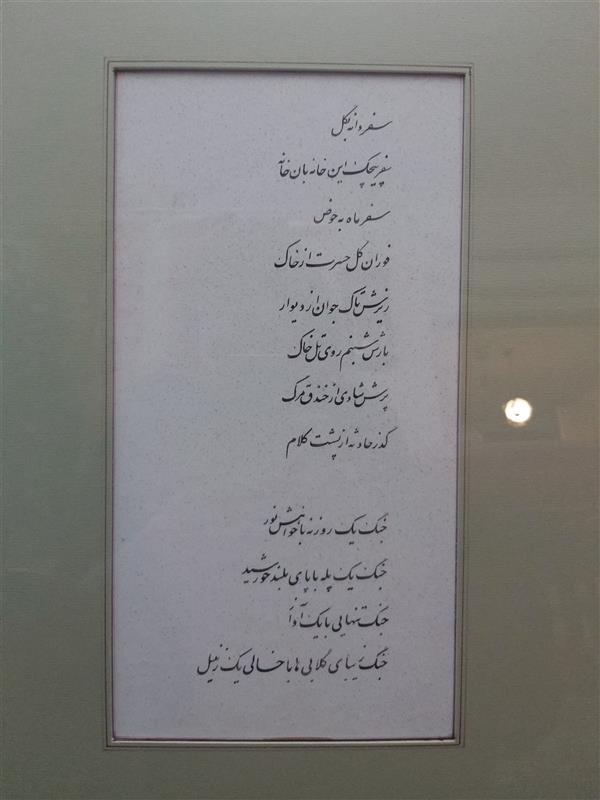 سفر دانه بگل
سفر پیچک این خانه بان خانه
سفر ماه به حوض
فوران گل حسرت از خاک
ریزش تاک جوان از دیوار
بارش شبنم روی تل خاک
پرش شادی از خندق مرگ
گذر حادثه از پشت کلام
جنگ یک روزنه با خواهش نور
جنگ یک پله با پای بلند خورشید
جنگ تنهایی با یک آواز
جنگ زیبای گلابی ها با خالی یک زنبیل